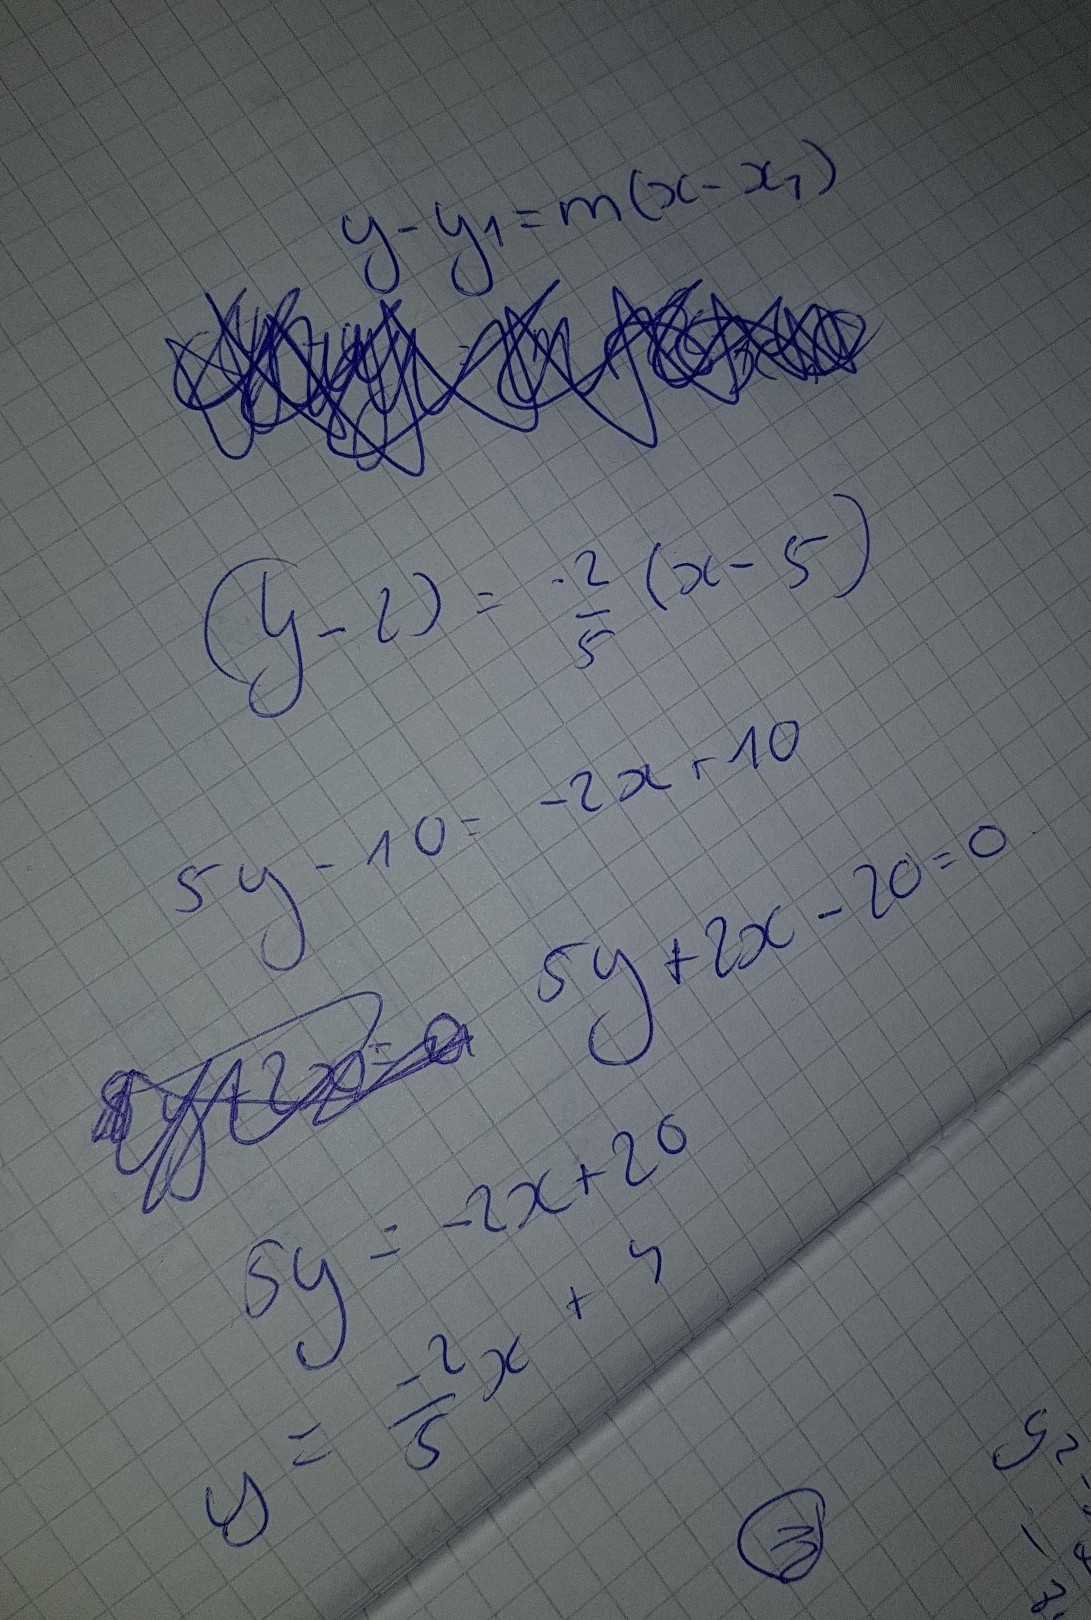 y-y₁=m(x-x₁)
(y-2) = -2/5 (x-5)
5y-10= -2x+10
5y+2x-20=0
5y+2x=0
5y = -2x+20
y = -2/5 x + 4
③